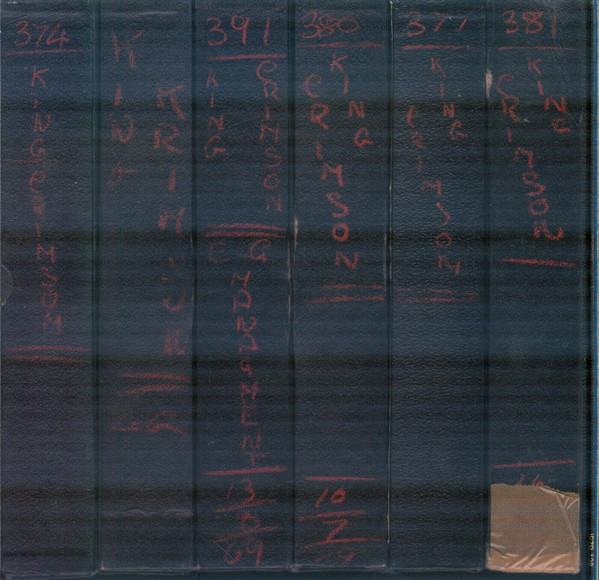 374
KING CRIMSON
KING
KRIMSON
391
KING
CRIMSON
EG
MANAGMENT
13
5
69
380
KING
CRIMSON
10
7
377
KING
CRIMSON
381
KING
CRIMSON
16